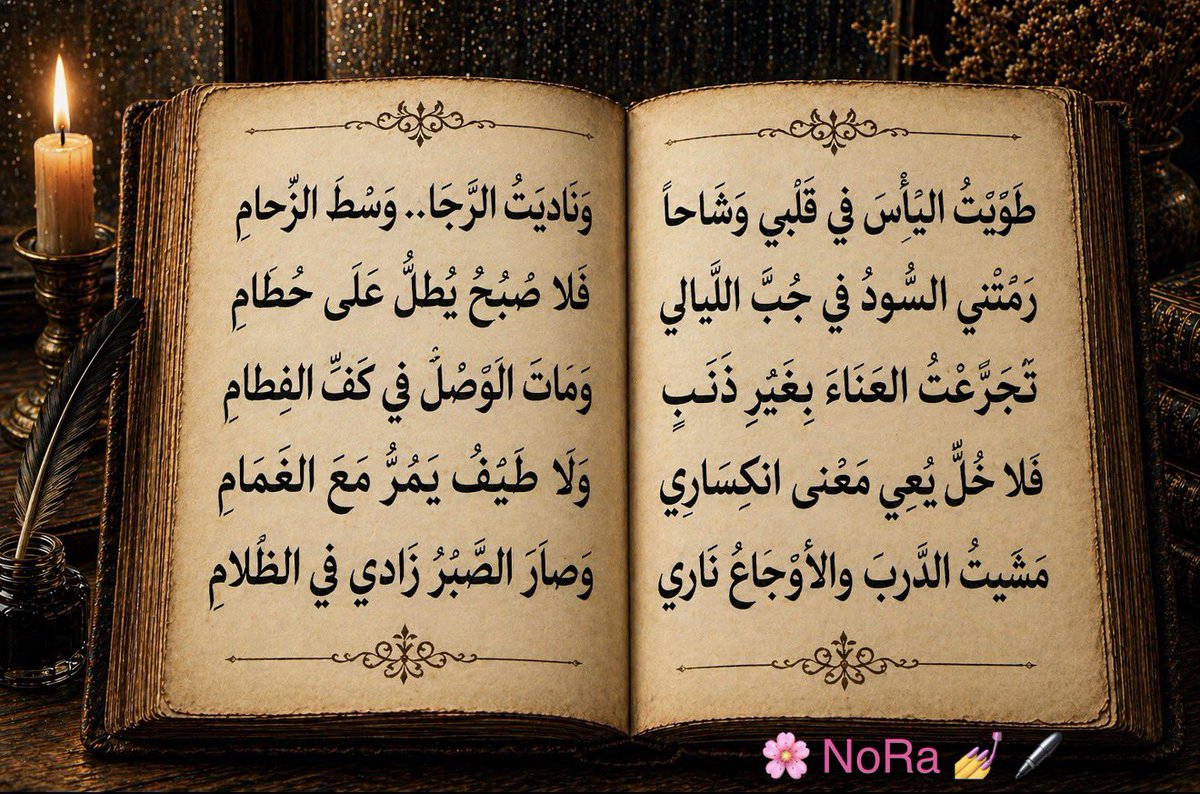 طَوْيْتُ اليْأْسَ في قَلْبي وَشَاحاً
وَنَاديَتُ الرَّجَا.. وَسْطَ الزِّحامِ
رَمْتْني السُّودُ في جُبَّ اللَّيالي
فَلا صُبْحُ يُطلُّ عَلَى حُطَامِ
تَجَرَّعْتُ العَنَاءَ بِغَيُرِ ذَنَبٍ
وَمَاتَ الَوْصُلْ في كَفِّ الفِطامِ
فَلا خُلُّ يُعِي مَعْنى انكِسَارِي
وَلَا طَيْفُ يَمُرُّ مَعَ الغَمَامِ
مَشَيتُ الدَّربَ والأوْجَاعُ نَاري
وَصاَرَ الصَّبْرُ زَادي في الظْلامِ
🌸 NoRa 💅 🖊️